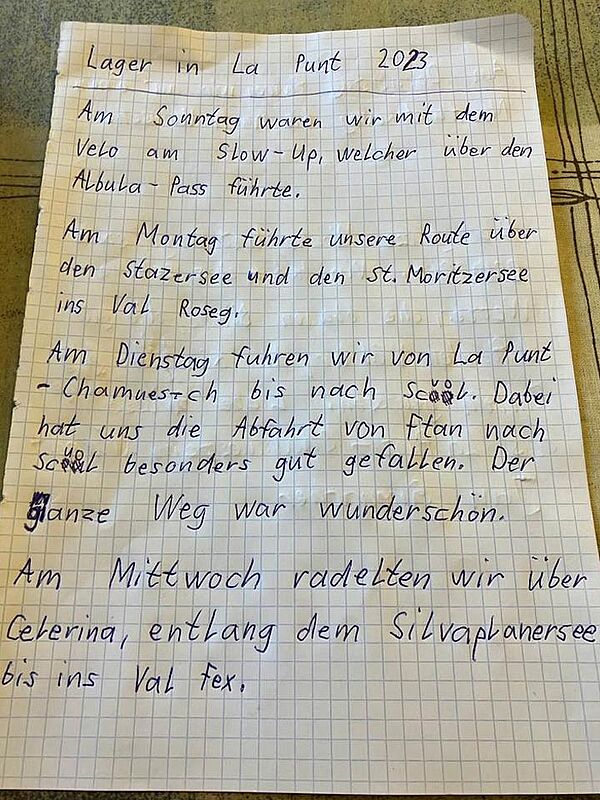 Lager in La Punt 2023
Am Sonntag waren wir mit dem
Velo am Slow-Up, welcher über den
Albula-Pass führte.
Am Montag führte unsere Route über
den Stazersee und den St. Moritzersee
ins Val Roseg.
Am Dienstag fuhren wir von La Punt
- Chamues-ch bis nach Scuol. Dabei
hat uns die Abfahrt von Ftan nach
Scuol besonders gut gefallen. Der
ganze Weg war wunderschön.
Am Mittwoch radelten wir über
Celerina, entlang dem Silvaplanersee
bis ins Val Fex.